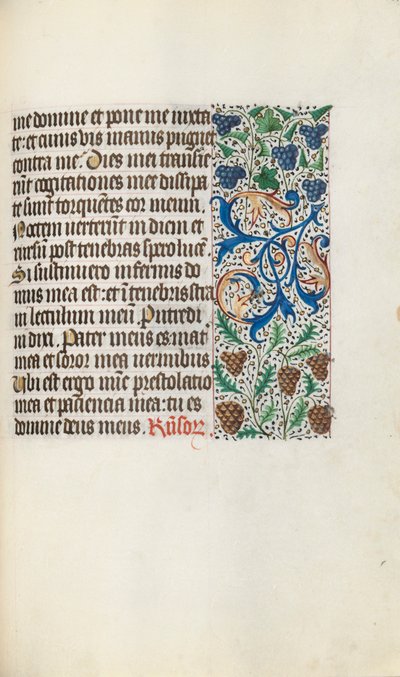 me domine et pone me iuxta
te: et cuiuis vis manus pugnet
contra me. Dies mei transie
rũt cogitationes mee dissipa
te sunt torquẽtes cor meum.
Noctem verterunt in diem et
rursũ post tenebras spero lucẽ
Si sustinuero infernus do
mus mea est: et ĩ tenebris stra
ui lectulum meũ. Putredi
ni dixi. Pater meus es: mat̃
mea et soror mea uermibus
Ubi est ergo nũc prestolatio
mea et paciencia mea: tu es
domine deus meus.